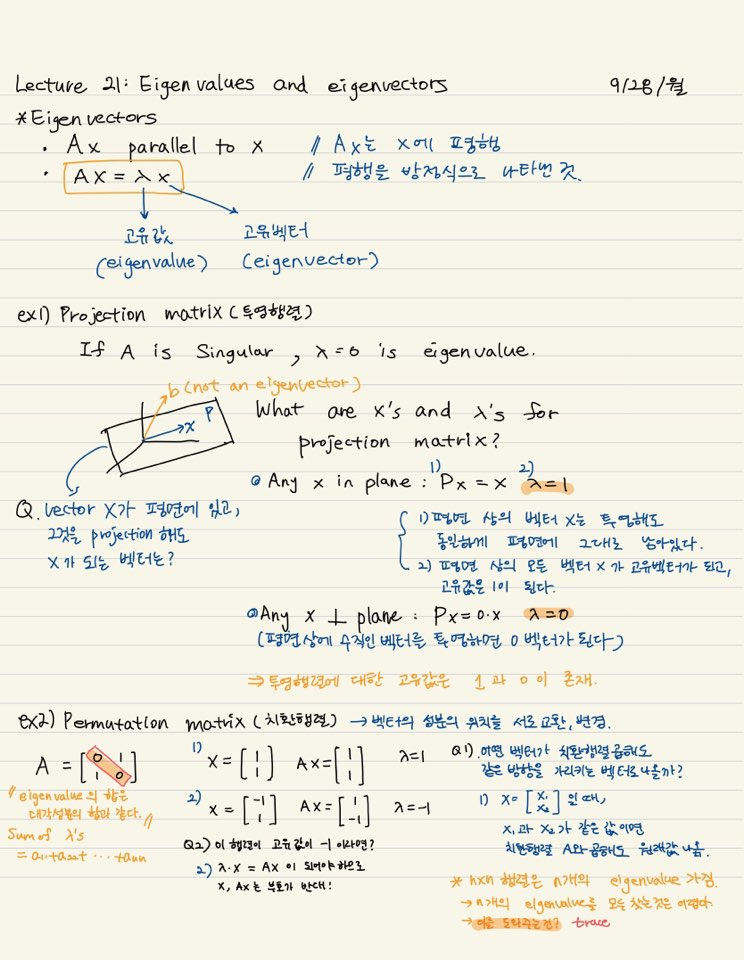 Lecture 21: Eigenvalues and eigenvectors 9/28/월
*Eigenvectors
• Ax parallel to x // Ax는 x에 평행
• Ax = λx // 평행을 방정식으로 나타낸 것.
고유값 고유벡터
(eigenvalue) (eigenvector)
ex1) Projection matrix (투영행렬)
If A is singular, λ=0 is eigenvalue.
b (not an eigenvector)
x P
What are x's and λ's for
projection matrix?
① Any x in plane : 1) Px = x 2) λ=1
Q. vector x가 평면에 있고,
그것을 projection 해도
x가 되는 벡터는?
1) 평면 상의 벡터 x는 투영해도
동일하게 평면에 그대로 남아있다.
2) 평면 상의 모든 벡터 x가 고유벡터가 되고,
고유값은 1이 된다.
② Any x ⊥ plane : Px=0·x λ=0
(평면상에 수직인 벡터를 투영하면 0벡터가 된다)
⇒ 투영행렬에 대한 고유값은 1과 0이 존재.
ex2) Permutation matrix (치환행렬) → 벡터의 성분의 위치를 서로 교환, 변경.
A = [0 1
1 0]
1) x = [1
1] Ax = [1
1] λ=1
2) x = [-1
1] Ax = [1
-1] λ=-1
// eigenvalue의 합은
대각성분의 합과 같다. //
Sum of λ's
= a11+a22+ ··· +ann
Q2) 이 행렬이 고유값이 -1 이라면?
2) λ·x = Ax 이 되어야 하므로
x, Ax는 부호가 반대!
Q1). 어떤 벡터가 치환행렬 곱해도
같은 방향을 가리키는 벡터로 나올까?
1) x = [x1
x2] 일 때,
x1과 x2가 같은 값이면
치환행렬 A와 곱해도 원래값 나옴.
* n×n 행렬은 n개의 eigenvalue 가짐.
→ n개의 eigenvalue를 모두 찾는것은 어렵다.
→ 이를 도와주는건? trace